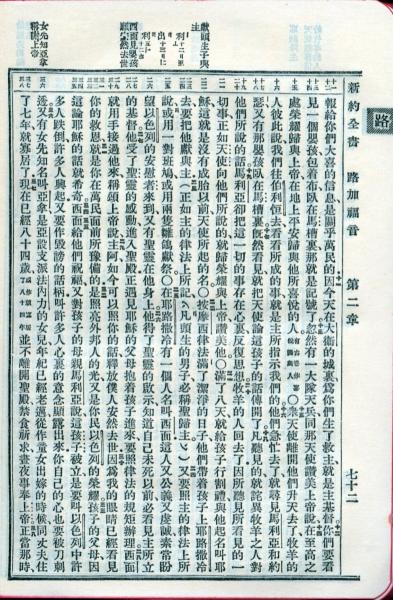 路
新約全書 路加福音 第二章 七十二
報給你們大喜的信息是關乎萬民的因今天在大衛的城裏爲你們生了救主就是主基督你們要看
見一個嬰孩包着布臥在馬槽裏那就是記號了忽然有一大隊天兵同那天使讚美上帝說在至高之
處榮耀歸與上帝在地上平安歸與他所喜悅的人○衆天使離開他們升天去了牧羊的
人彼此說我們往伯利恒去看看所成的事就是主所指示我們的他們急忙去了就尋見馬利亞和約
瑟又有那嬰孩臥在馬槽裏旣然看見就把天使論這孩子的話傳開了凡聽見的就詫異牧羊之人對
他們所說的話馬利亞却把這一切的事存在心裏反復思想牧羊的人回去了因所聽見所看見的一
切事正如天使向他們所說的就歸榮耀與上帝讚美他○滿了八天就給孩子行割禮與他起名叫耶
穌這就是沒有成胎以前天使所起的名○按摩西律法滿了潔淨的日子他們帶着孩子上耶路撒冷
去要把他獻與主(正如主的律法上所記凡頭生的男子必稱聖歸主)又要照主的律法上所
說或用一對班鳩或用兩隻雛鴿獻祭○在耶路撒冷有一個人名叫西面這人又公義又虔誠素常盼
望以色列的安慰者來到又有聖靈在他身上他得了聖靈的啟示知道自己未死以前必看見主所立
的基督他受了聖靈的感動進入聖殿正遇見耶穌的父母抱着孩子進來要照律法的規矩辦理西面
就用手接過他來稱頌上帝說主阿如今可以照你的話釋放僕人安然去世因爲我的眼睛已經看見
你的救恩就是你在萬民面前所豫備的是照亮外邦人的光又是你民以色列的榮耀孩子的父母因
這論耶穌的話就希奇西面給他們祝福又對孩子的母親馬利亞說這孩子被立是要叫以色列中許
多人跌倒許多人興起又要作毀謗的話柄叫許多人心裏的意念顯露出來你自己的心也要被刀刺
透又有女先知名叫亞拿是亞設支派法內力的女兒年紀已經老邁從作童女出嫁的時候同丈夫住
了七年就寡居了現在已經八十四歲或作寡居八十四年並不離開聖殿禁食祈求晝夜事奉上帝正當那時
獻頭生子與
主
西面見嬰孩
願安然去世
女先知亞拿
稱謝上帝